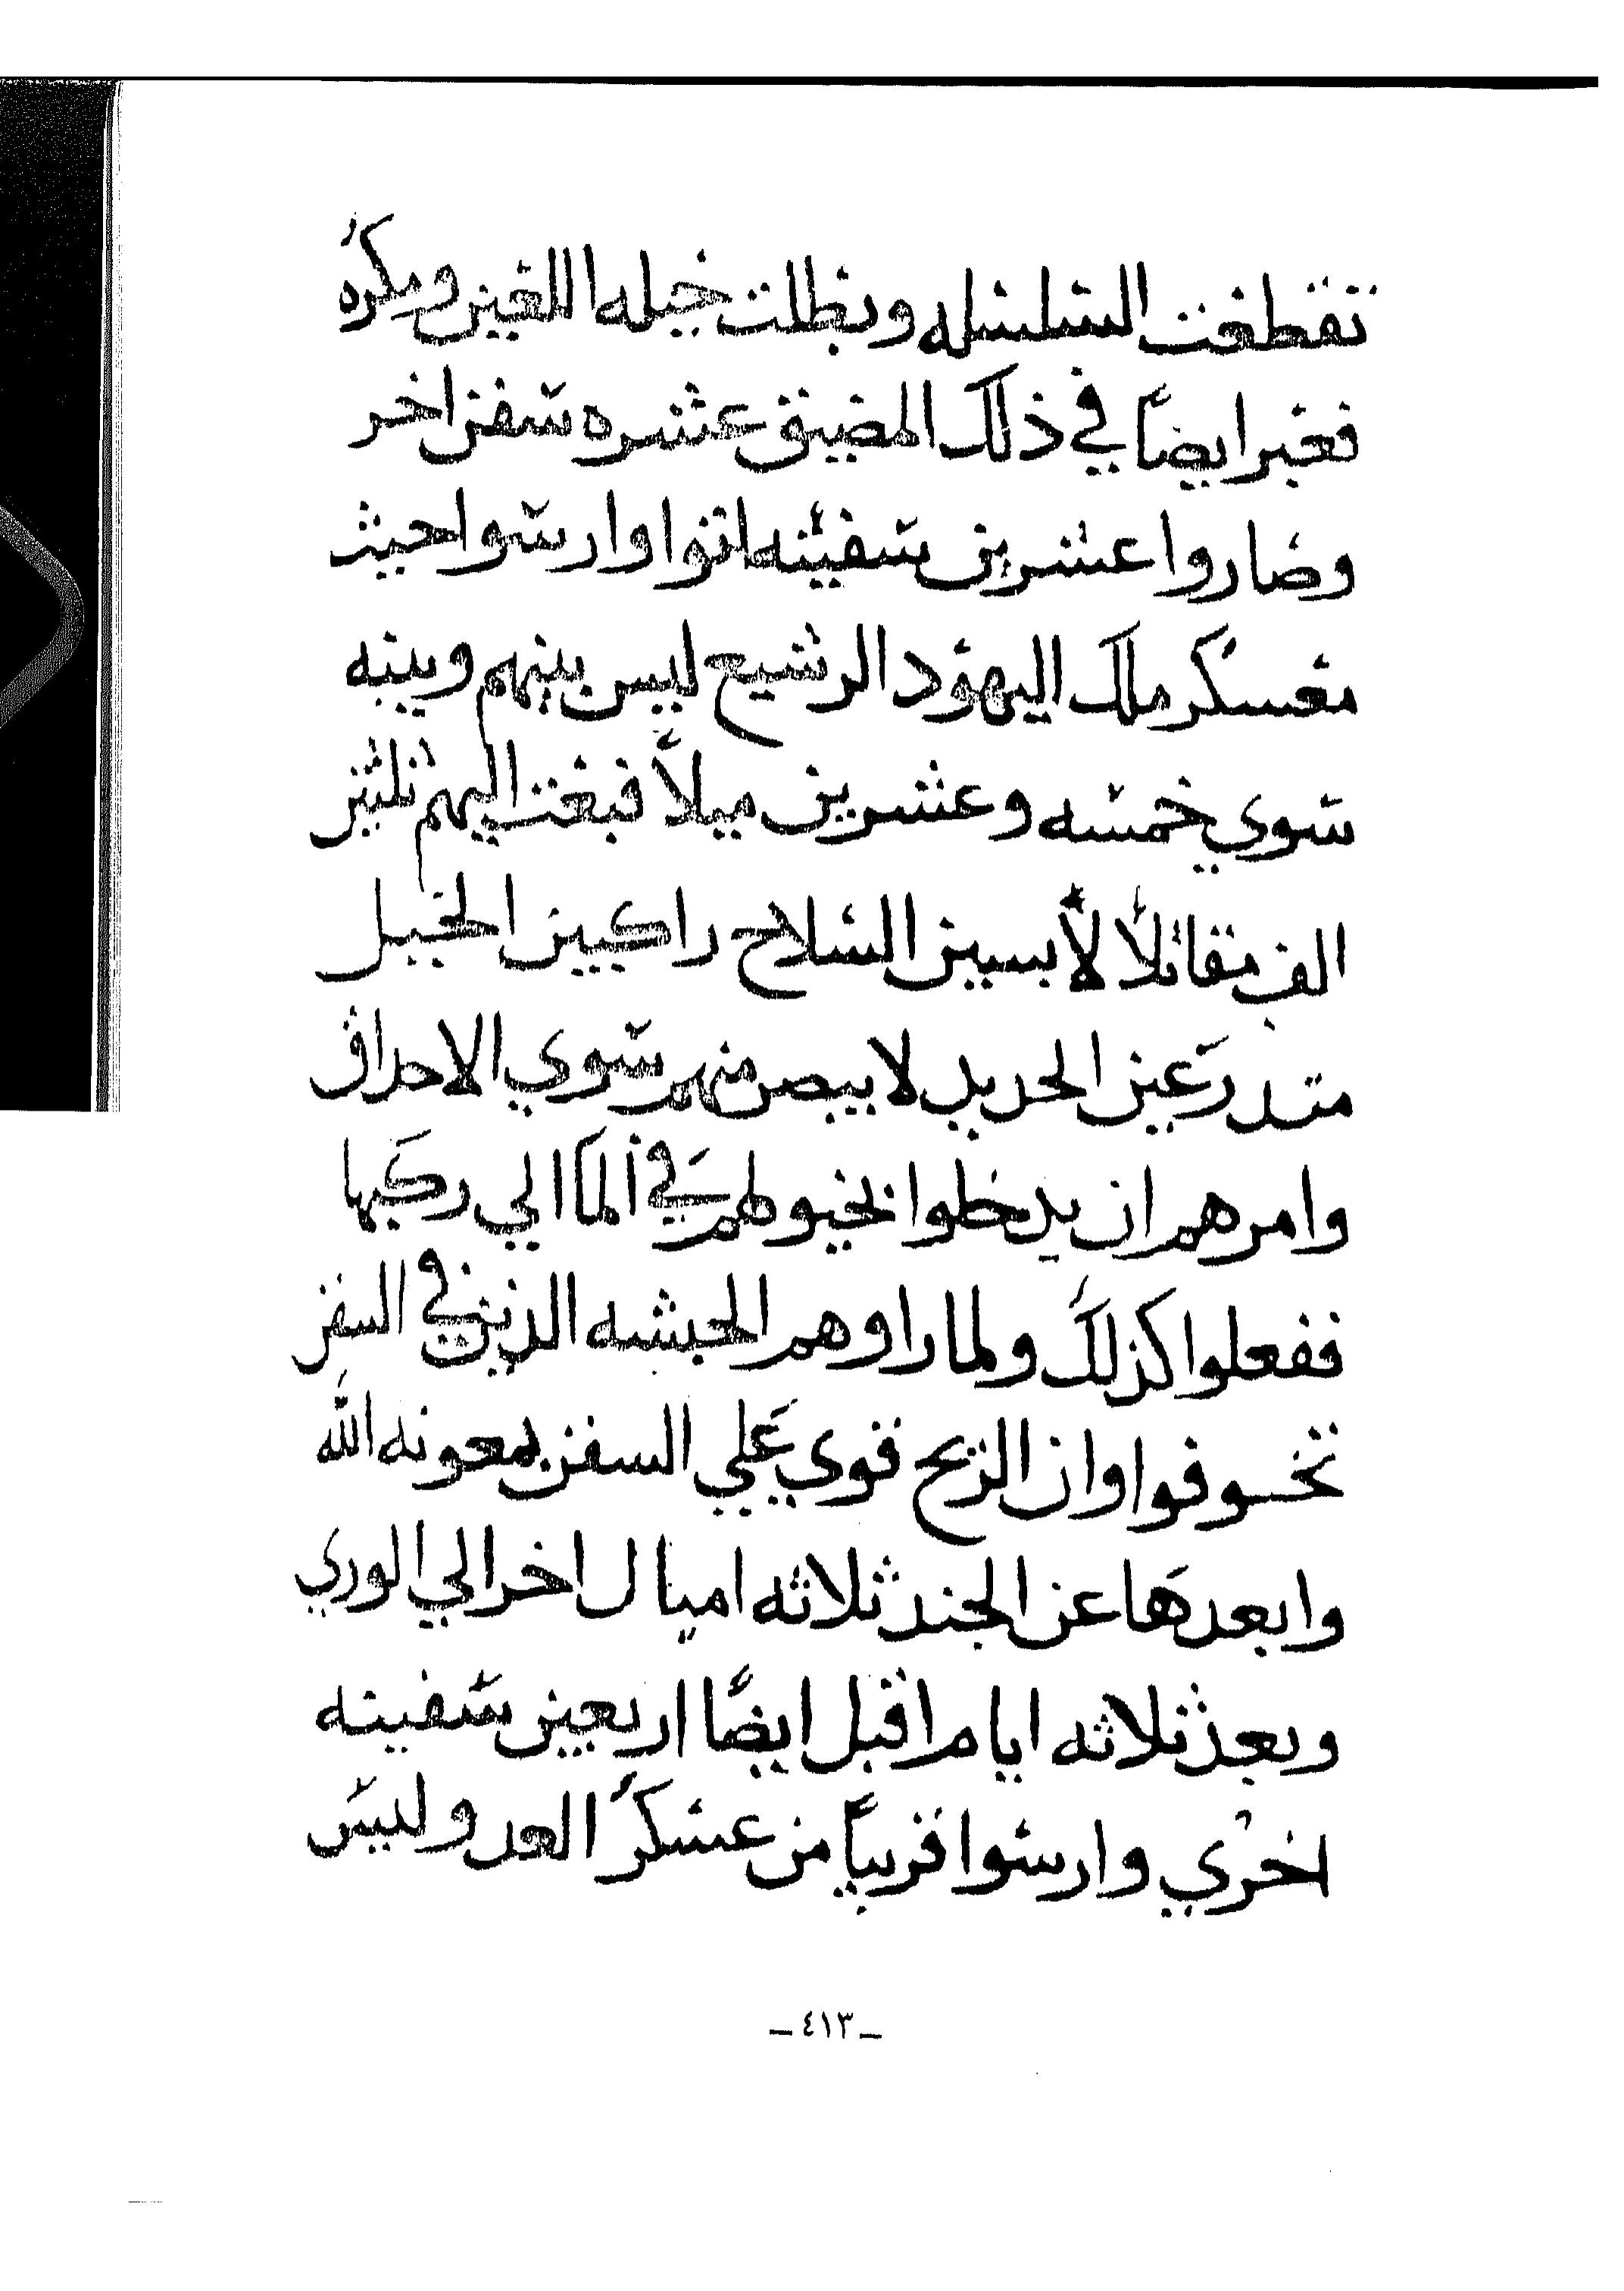 تقطعت السلسله وبطلت حيله اللعين ومكره
فعبر ايضاً في ذلك المضيق عشره سفن اخر
وصاروا عشرين سفينه اتوا وارسوا حيث
معسكر ملك اليهود الرشيع ليس بينهم وبينه
سوي خمسه وعشرين ميلاً فبعت اليهم ثلثين
الف مقاتلاً لأبسين السلاح راكبين الخيل
متدرعين الحديد لا يبصر منهم سوي الاحداق
وامرهم ان يدخلوا بخيولهم في الما الي ركبها
ففعلوا كذلك ولما راوهم الحبشه الدين في السفن
تخوفوا وان الريح قوي علي السفن بمعونه الله
وابعدها عن الجند ثلاثه اميال اخر الي الوري
وبعد ثلاثه ايام اقبل ايضاً اربعين سفينه
اخري وارسوا قريباً من عسكر العدو وليس
ـ٤١٣ـ